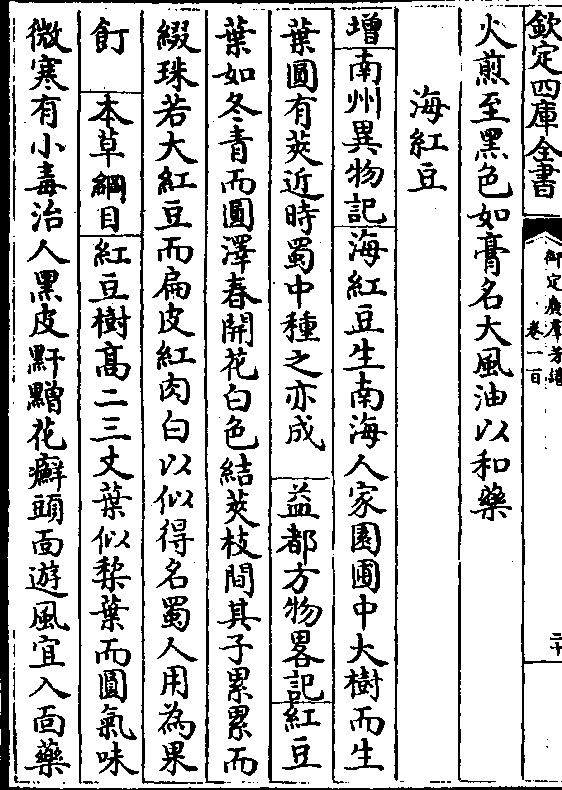 欽定四庫全書
御定廣羣芳譜
卷一百
二十
火煎至黑色如膏名大風油以和藥
海紅豆
增南州異物記海紅豆生南海人家園圃中大樹而生
葉圓有莢近時蜀中種之亦成 益都方物畧記紅豆
葉如冬青而圓澤春開花白色結莢枝間其子累累而
綴珠若大紅豆而扁皮紅肉白以似得名蜀人用為果
飣 本草綱目紅豆樹高二三丈葉似梨葉而圓氣味
微寒有小毒治人黑皮䵟黯花癬頭面遊風宜入面藥